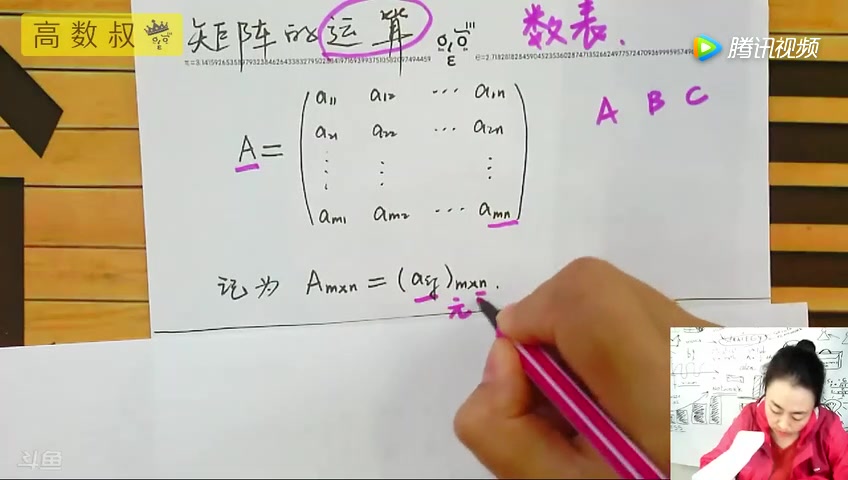 高数叔
矩阵的运算
数表.
腾讯视频
A B C
a11 a12 ··· a1n
a21 a22 ··· a2n
A =
⋮ ⋮ ⋮
am1 am2 ··· amn
记为 Am×n = (aij)m×n.
元
斗鱼